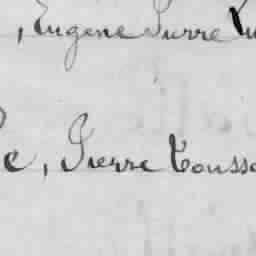 , Eugene Pierre
, Pierre Touss